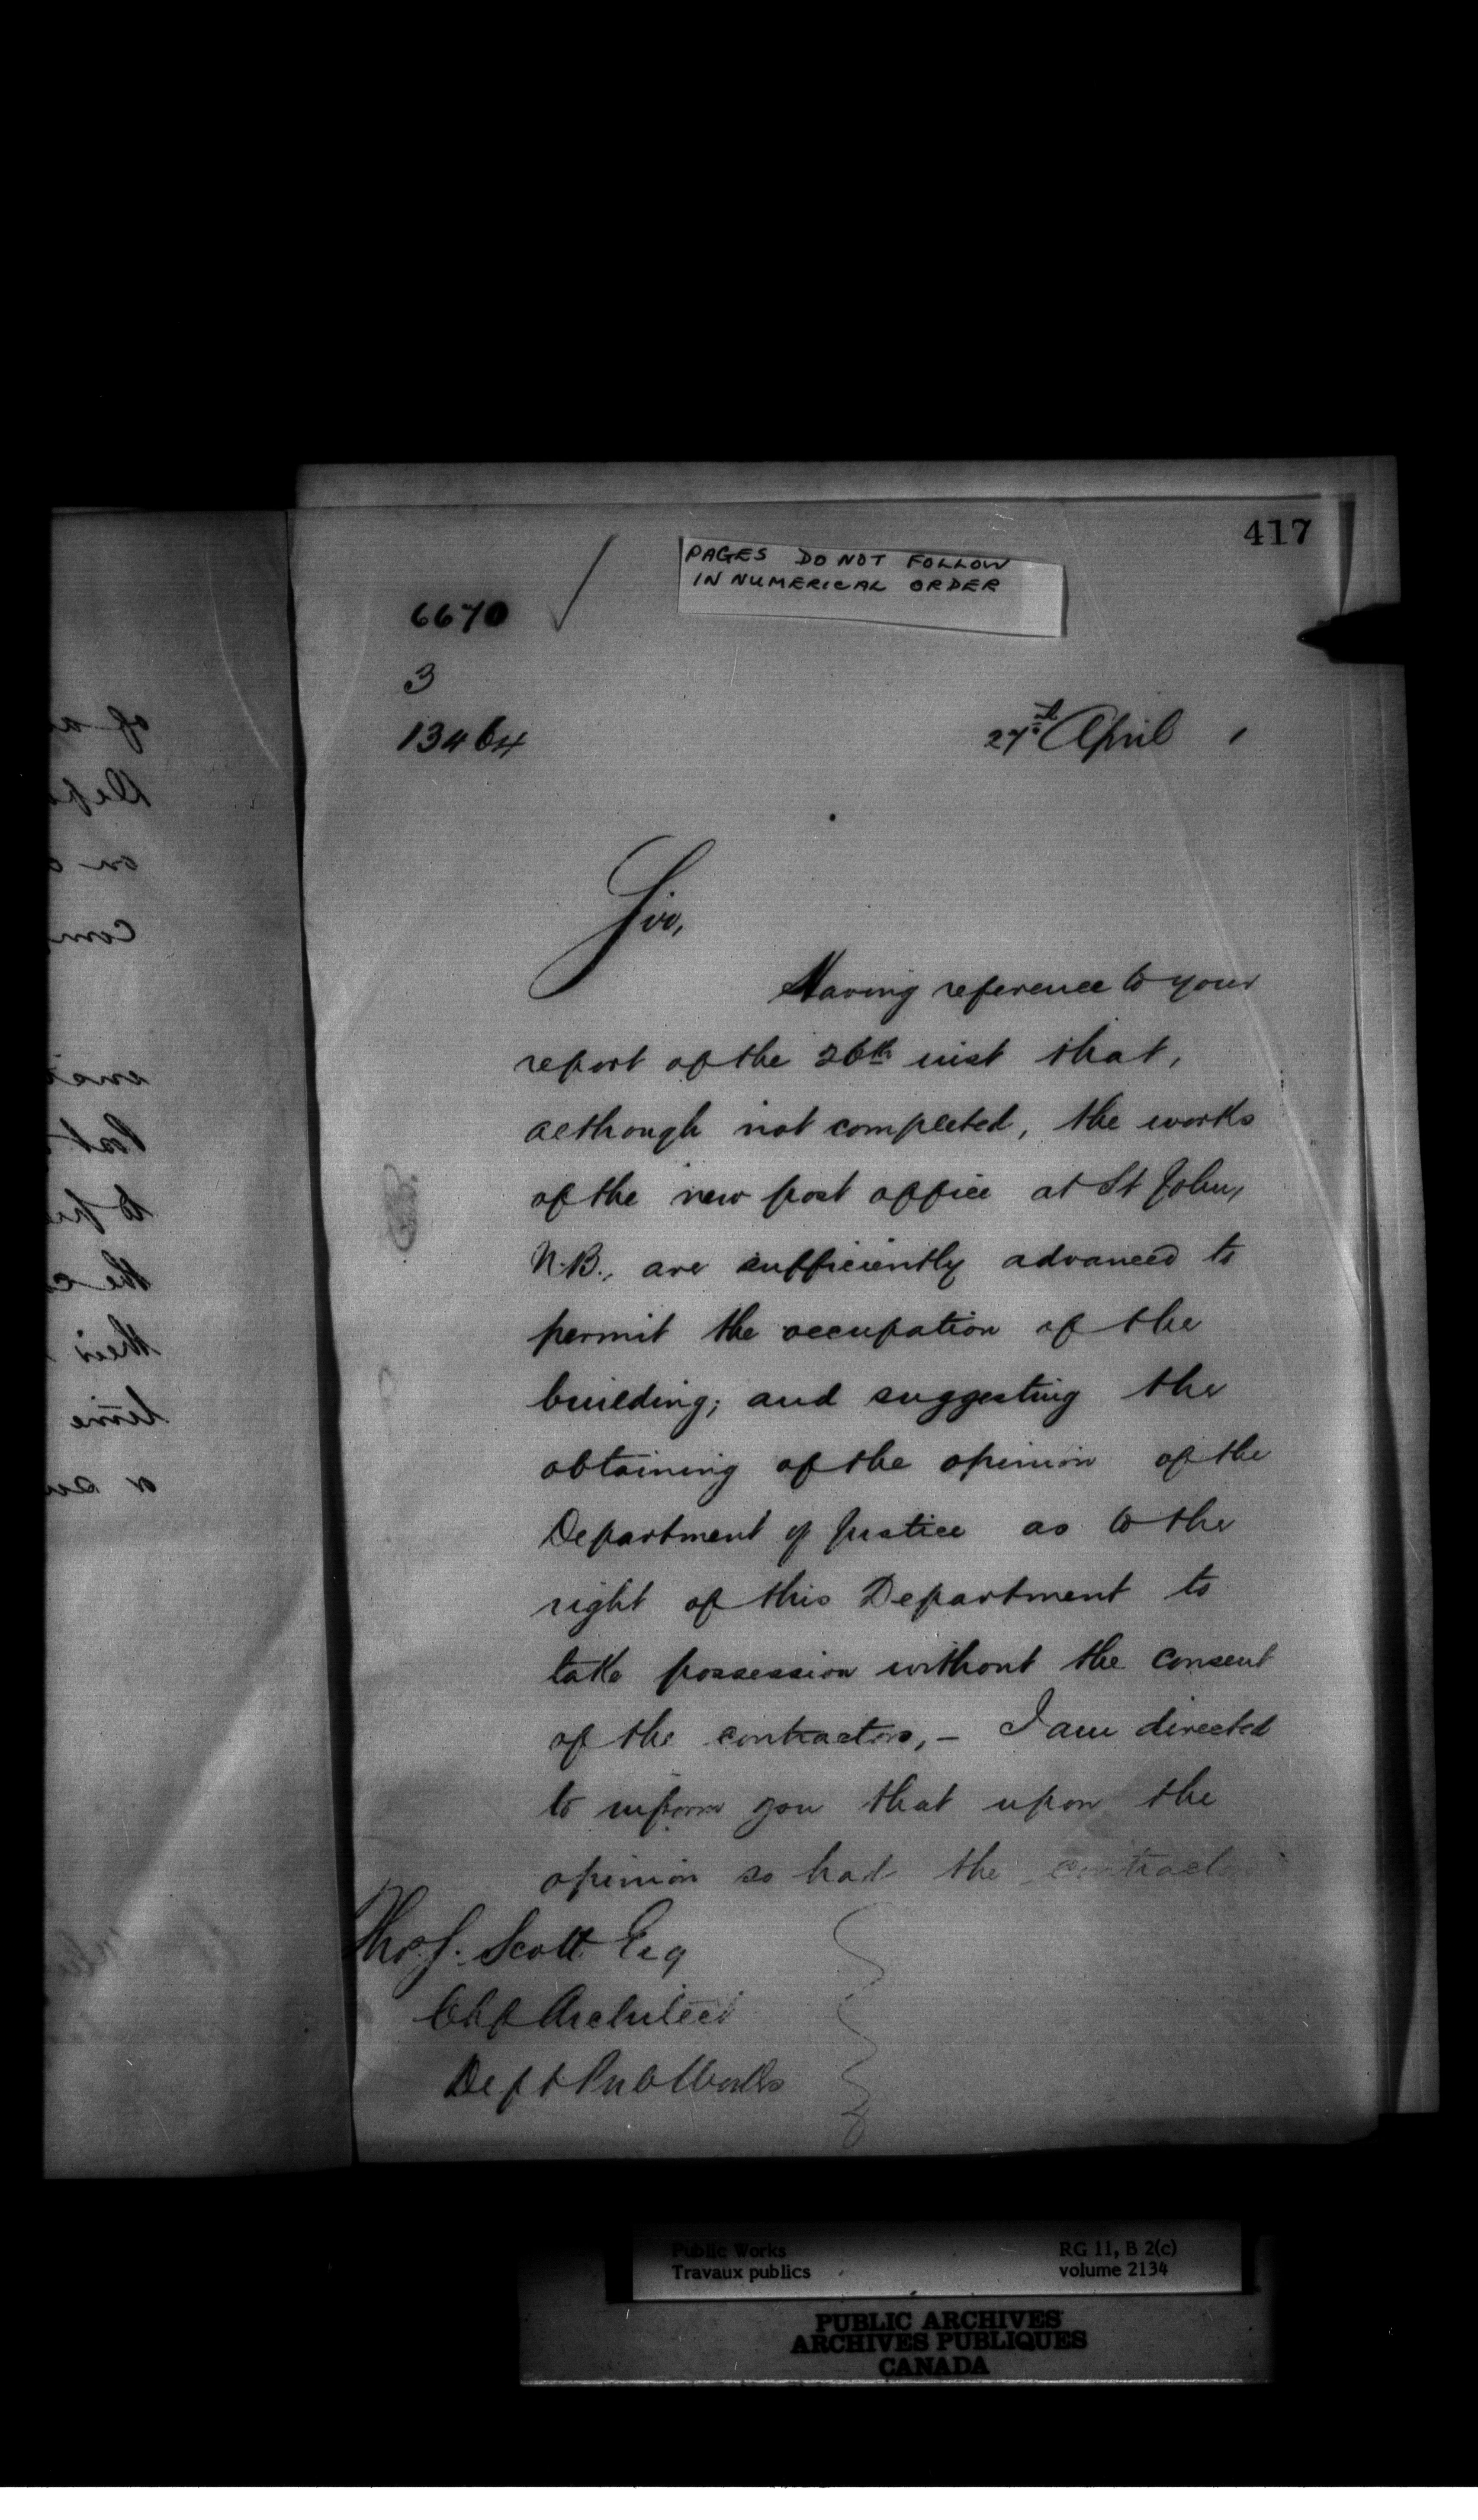 417
PAGES DO NOT FOLLOW
IN NUMERICAL ORDER
6670
3
13464
27th April
Sir,
Having reference to your
report of the 26th inst that,
although not completed, the works
of the new post office at St John,
N.B., are sufficiently advanced to
permit the occupation of the
building; and suggesting the
obtaining of the opinion of the
Department of Justice as to the
right of this Department to
take possession without the consent
of the contractors, - I am directed
to inform you that upon the
opinion so had the contractors
Thos. S. Scott Esq
Chf Architect
Dept Pub Works
of a
Dep
on
com
smal
to
the c
their
time
Public Works
Travaux publics
RG 11, B 2(c)
volume 2134
PUBLIC ARCHIVES
ARCHIVES PUBLIQUES
CANADA